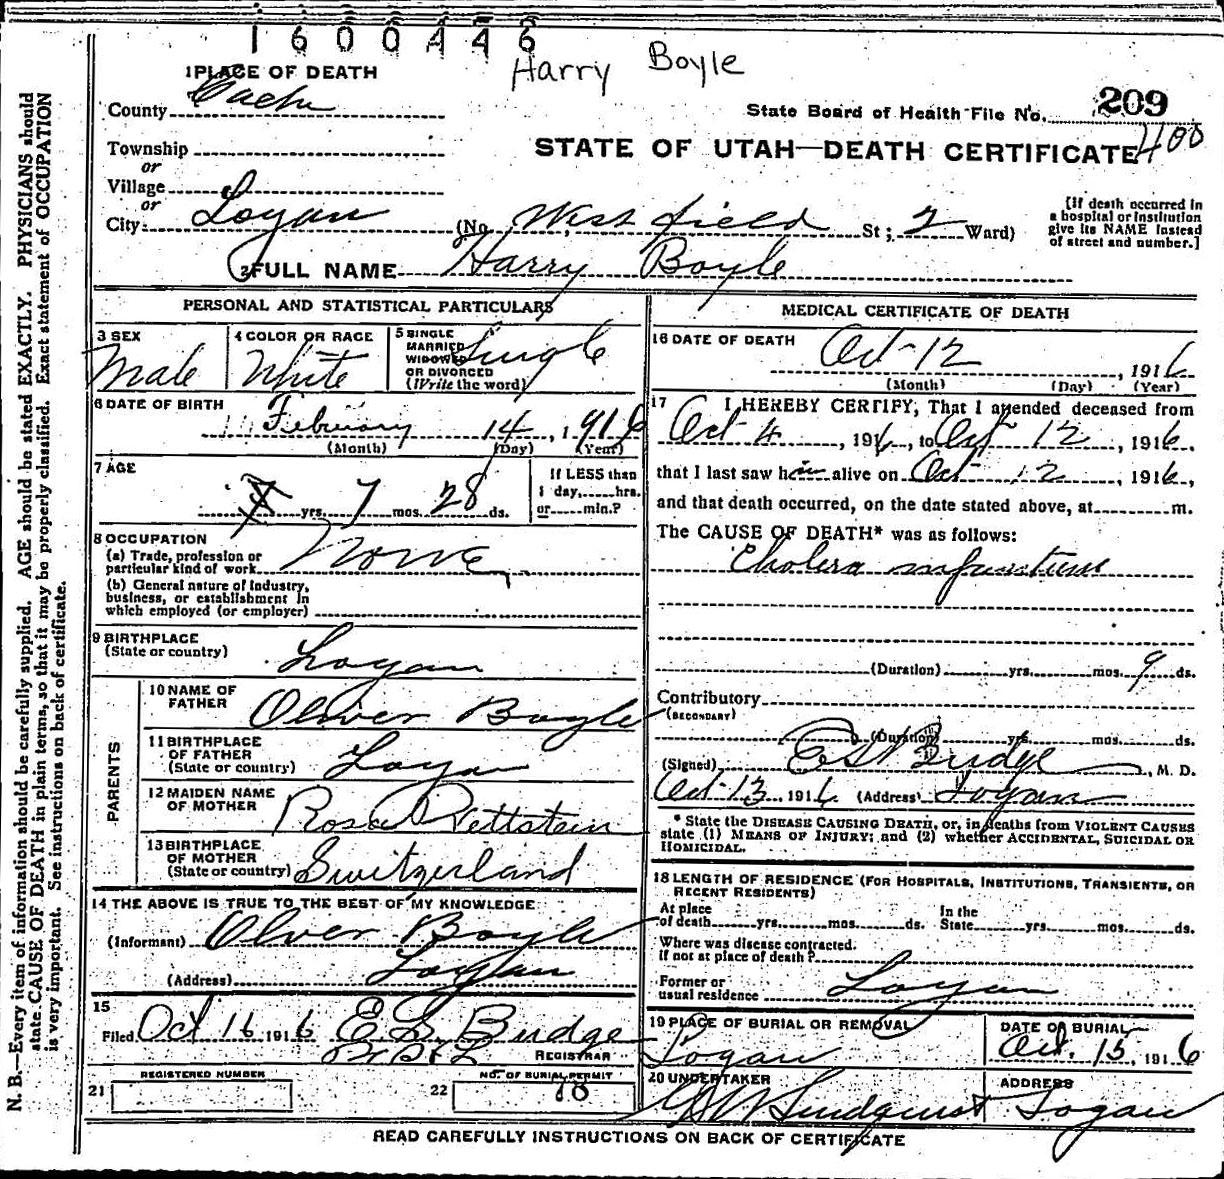 1600446
Harry Boyle
1 PLACE OF DEATH
County Cache
State Board of Health File No. 209
400
STATE OF UTAH—DEATH CERTIFICATE
Township
or
Village
or
City Logan (No. West field St; 2 Ward)
[If death occurred in a hospital or institution give its NAME instead of street and number.]
2 FULL NAME Harry Boyle
PERSONAL AND STATISTICAL PARTICULARS
3 SEX Male
4 COLOR OR RACE White
5 SINGLE MARRIED WIDOWED OR DIVORCED (Write the word) Single
6 DATE OF BIRTH
February 14, 1916
(Month) (Day) (Year)
7 AGE
yrs. 7 mos. 28 ds.
If LESS than 1 day,.....hrs. or.....min.?
8 OCCUPATION
(a) Trade, profession or particular kind of work None
(b) General nature of industry, business, or establishment in which employed (or employer)
9 BIRTHPLACE (State or country) Logan
PARENTS
10 NAME OF FATHER Oliver Boyle
11 BIRTHPLACE OF FATHER (State or country) Logan
12 MAIDEN NAME OF MOTHER Rosa Pettstein
13 BIRTHPLACE OF MOTHER (State or country) Switzerland
14 THE ABOVE IS TRUE TO THE BEST OF MY KNOWLEDGE
(Informant) Oliver Boyle
(Address) Logan
15
Filed Oct 16 1916 E. S. Budge
REGISTRAR
REGISTERED NUMBER
21
NO. OF BURIAL PERMIT
22 78
MEDICAL CERTIFICATE OF DEATH
16 DATE OF DEATH
Oct-12, 1916
(Month) (Day) (Year)
17 I HEREBY CERTIFY, That I attended deceased from
Oct 4, 1916, to Oct 12, 1916,
that I last saw him alive on Oct 12, 1916,
and that death occurred, on the date stated above, at m.
The CAUSE OF DEATH* was as follows:
Cholera infantum
(Duration) yrs. mos. 9 ds.
Contributory
(SECONDARY)
(Duration) yrs. mos. ds.
(Signed) Budge, M. D.
Oct-13, 1916 (Address) Logan
* State the DISEASE CAUSING DEATH, or, in deaths from VIOLENT CAUSES state (1) MEANS OF INJURY; and (2) whether ACCIDENTAL, SUICIDAL OR HOMICIDAL.
18 LENGTH OF RESIDENCE (FOR HOSPITALS, INSTITUTIONS, TRANSIENTS, OR RECENT RESIDENTS)
At place of death yrs. mos. ds. In the State yrs. mos. ds.
Where was disease contracted, if not at place of death?
Former or usual residence Logan
19 PLACE OF BURIAL OR REMOVAL Logan
DATE OF BURIAL Oct. 15, 1916
20 UNDERTAKER Lindquist
ADDRESS Logan
READ CAREFULLY INSTRUCTIONS ON BACK OF CERTIFICATE
N. B.—Every item of information should be carefully supplied. AGE should be stated EXACTLY. PHYSICIANS should
state CAUSE OF DEATH in plain terms, so that it may be properly classified. Exact statement of OCCUPATION
is very important. See instructions on back of certificate.